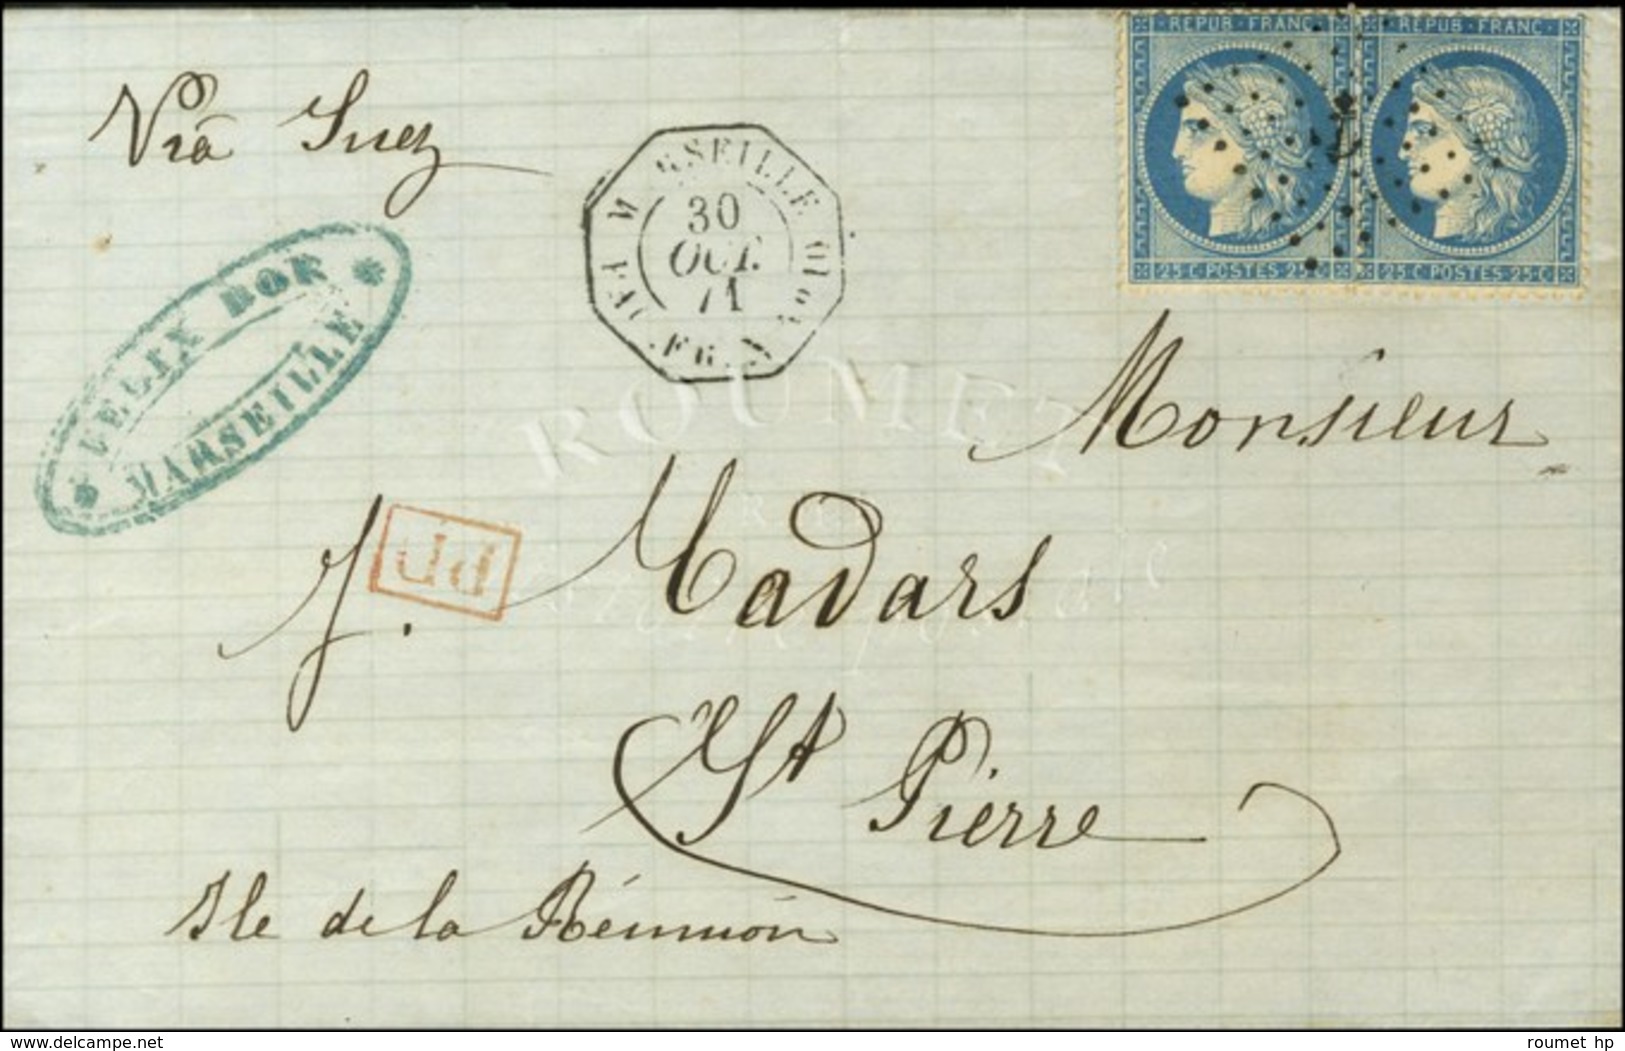 REPUB · FRANC · REPUB · FRANC ·
25 · C · POSTES · 25 · C · 25 · C · POSTES · 25 · C ·
Via Suez
MARSEILLE
30
OCT.
71
FR.
FELIX BOR
MARSEILLE
Monsieur
PD
J. Madars
St Pierre
Ile de la Réunion
ROUMET
histoire postale
delcampe.net
roumet hp